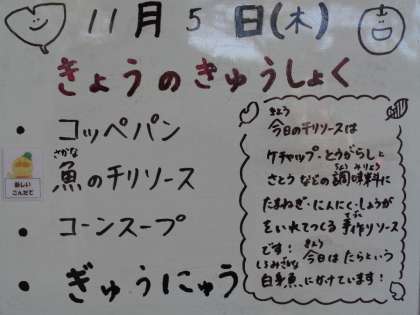 11月5日(木)
きょうのきゅうしょく
・コッペパン
・魚のチリソース
さかな
新しい
こんだて
・コーンスープ
・ぎゅうにゅう
きょう
今日のチリソースは
ケチャップ・とうがらしと
ちょうみりょう
さとうなどの調味料に
たまねぎ・にんにく・しょうが
をいれてつくる手作りソース
です！今日はたらという
きょう
しろみざかな
白身魚にかけています！